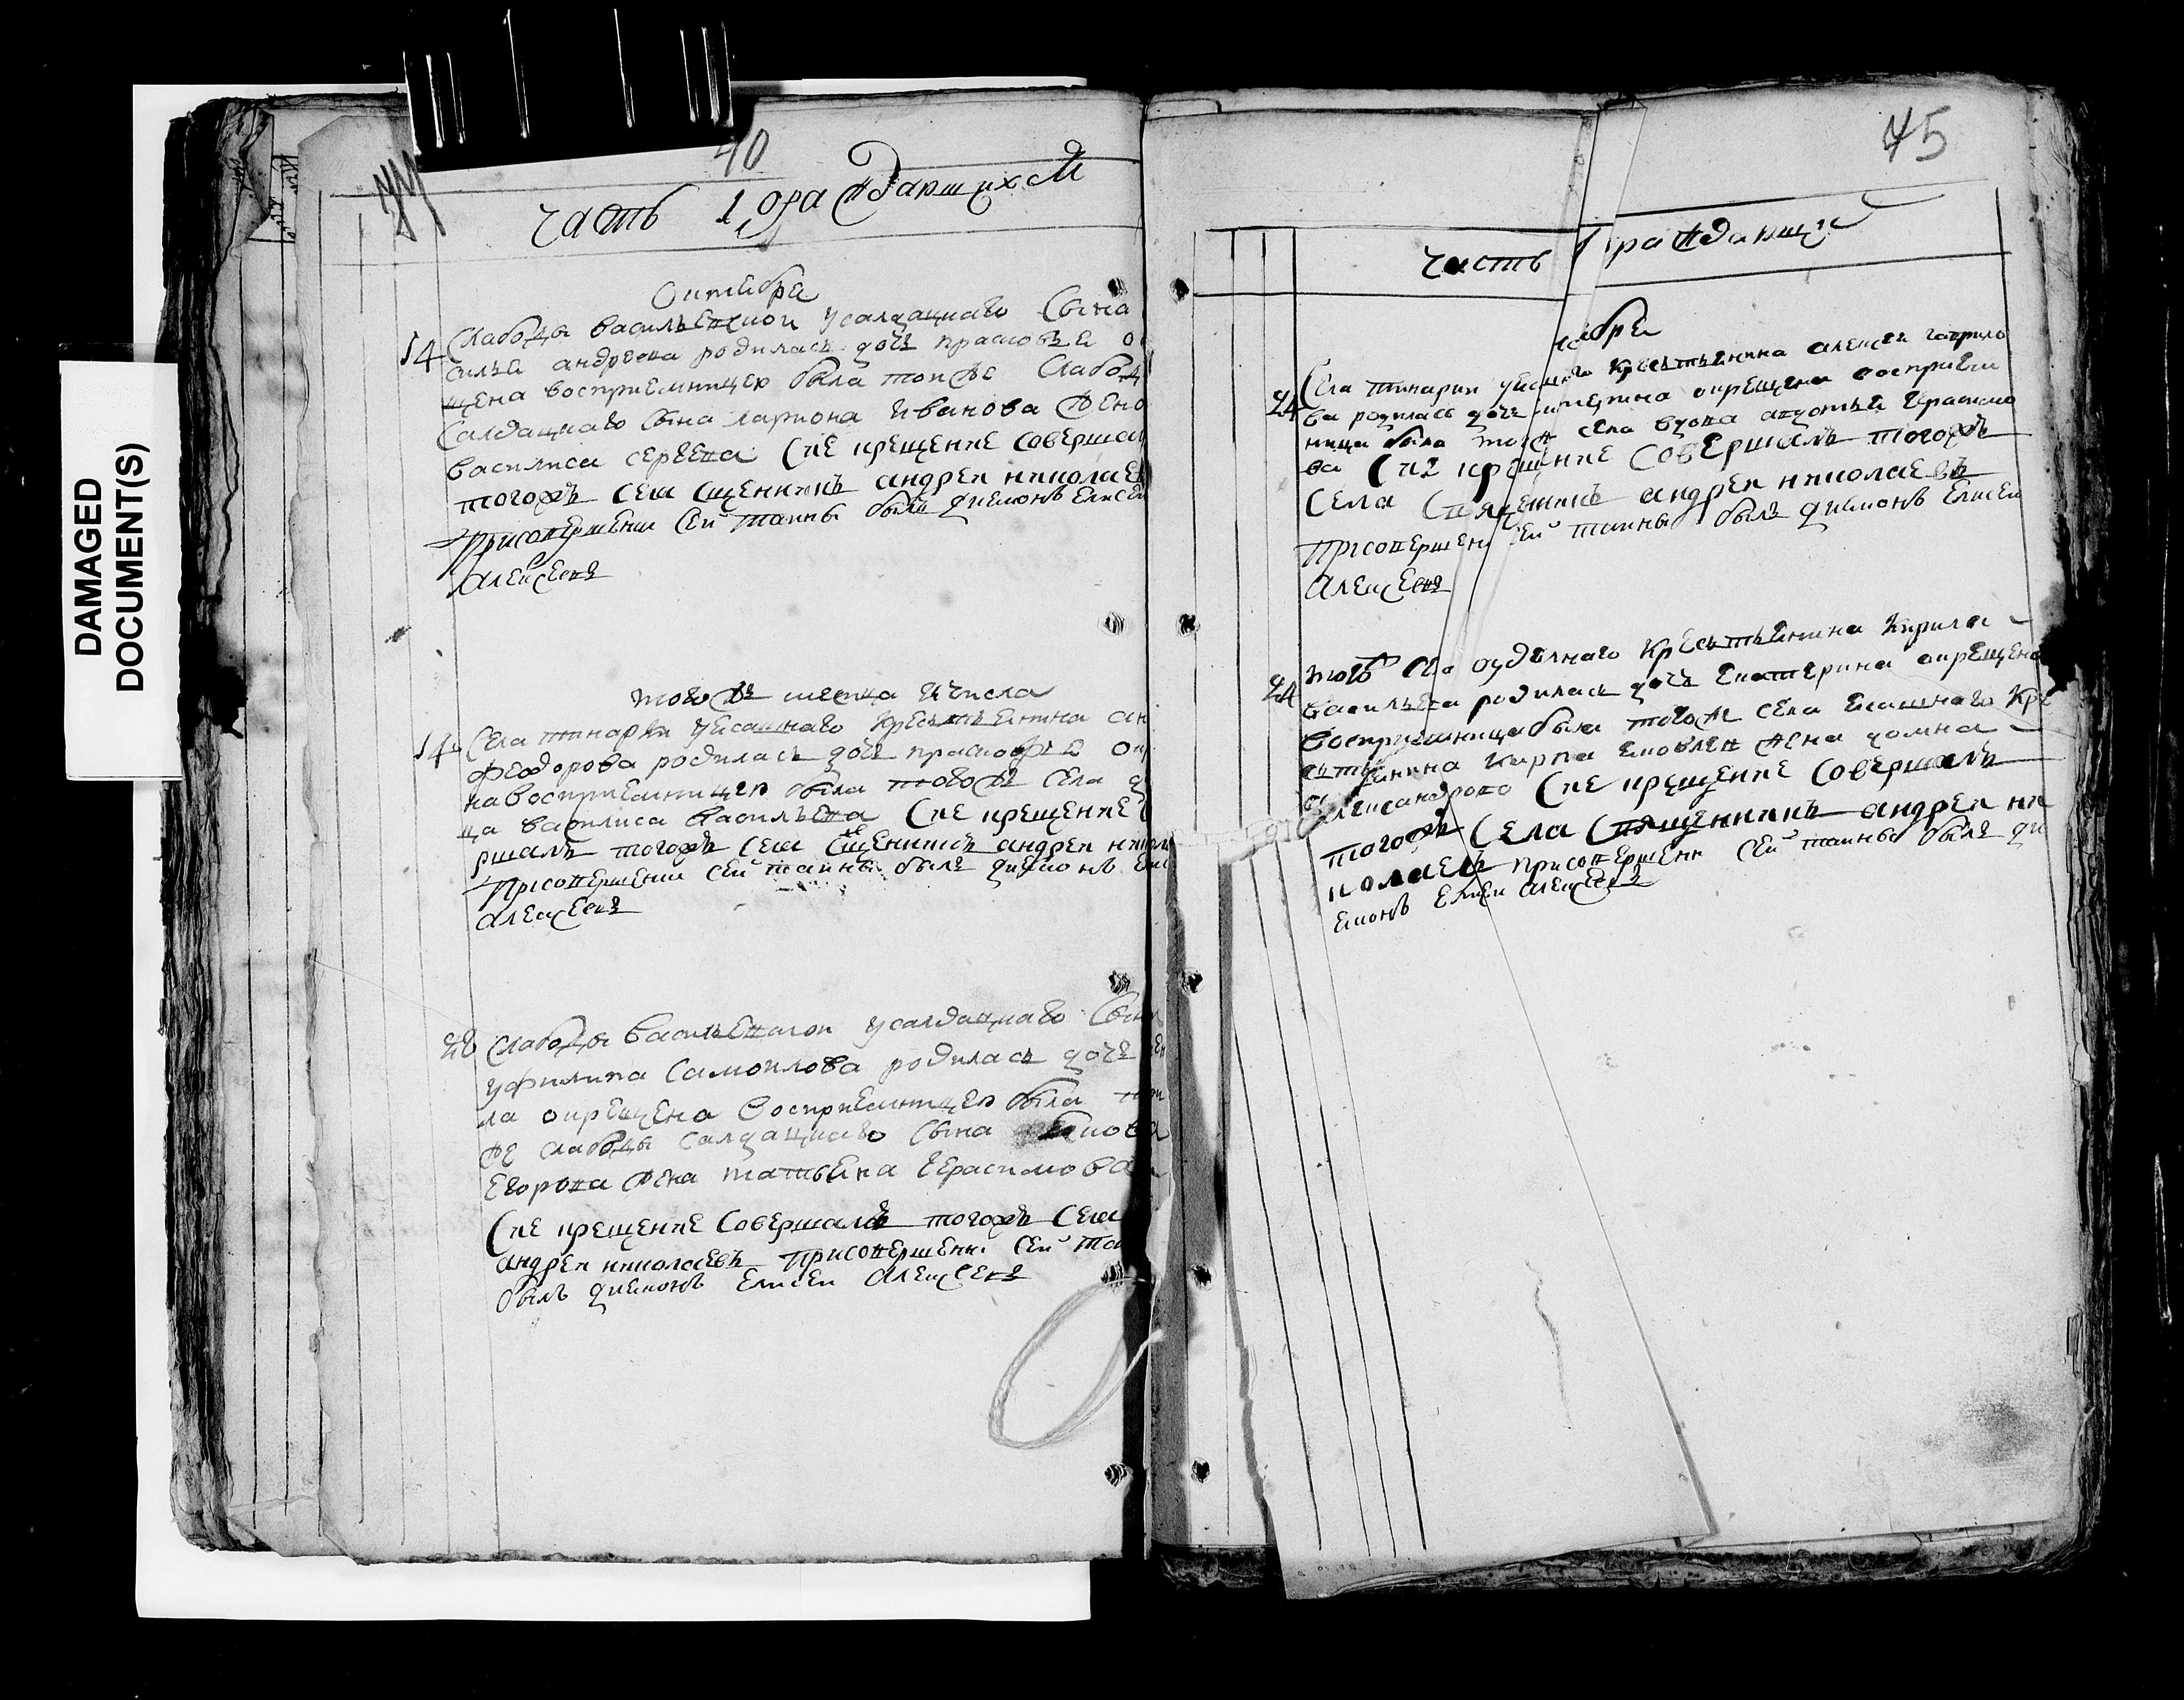 DAMAGED
DOCUMENT(S)
40
часть 1 ораждающихся
Октебра
14
Слабоды васильевкои у салдацкаго Сына
силья андреева родилась дочь прасковья
щена восприемницею была тои же Слабод
Салдацкаго сына лариона Иванова жена
василиса сергеева Сие крещение совершал
тогожъ села сщенникъ андреи николаев
При совершени сеи таины былъ диаконъ Елисеи
алексеевъ
того жъ месеца и числа
14
Села тинарки у ясашнаго крестьянина ан
феодорова родилась дочь прасковья ок
на восприемницею была того жъ села д
ца василиса васильева Сие крещение
ршалъ тогожъ села сщенникъ андреи никол
При совершении сеи таины былъ диаконъ ели
алексеевъ
28
Слабоды васильевкои у салдацкаго Сын
у филипа самоилова родилась дочь
ла окрещена восприемницею была той
же слабоды салдацкаго сына
Егорова жена татьяна Герасимова
Сие крещение совершалъ тогожъ села
андреи николаевъ При совершени сеи таи
былъ диаконъ Елисеи алексеевъ
45
часть 1 раждающи
ябре
24
Села тинарки у ясашнаго крестьянина алексея гаврило
ва родилась дочь екатерина окрещена восприем
ница была того ж села вдова авдотья Герасимо
ва Сие крещение Совершалъ тогожъ
Села Священникъ андреи николаевъ
При совершени сеи таины былъ диаконъ Елисеи
алексеевъ
24
того ж села оуделнаго крестьянина Кирила
васильева родилась дочь Екатерина окрещена
восприемница была того ж села ясашнаго кре
стьянина карпа яковлев жена домна
александрова Сие крещение совершалъ
тогожъ Села Священникъ андреи ни
колаевъ при совершени сеи таины былъ ди
яконъ Елисеи алексеевъ